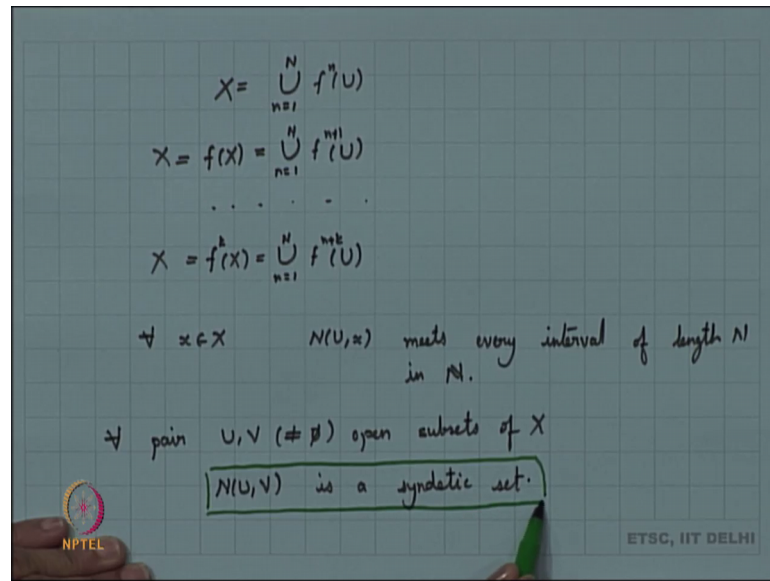 X = ⋃_{n=1}^{N} f^n(U)
X = f(X) = ⋃_{n=1}^{N} f^{n+1}(U)
. . . . . .
X = f^k(X) = ⋃_{n=1}^{N} f^{n+k}(U)
∀ x ∈ X N(U,x) meets every interval of length N
in ℕ.
∀ pair U, V (≠ ∅) open subsets of X
N(U,V) is a syndetic set.
NPTEL
ETSC, IIT DELHI